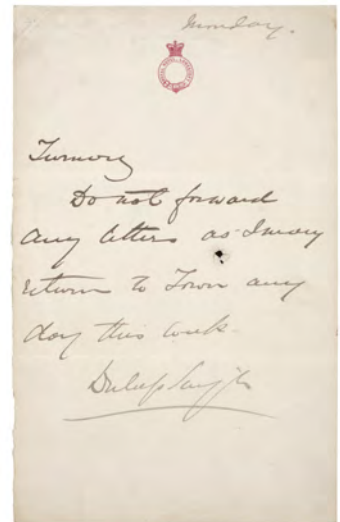 Monday.
Do not forward
any letters as I may
return to Town any
day this week.
Duleep Singh